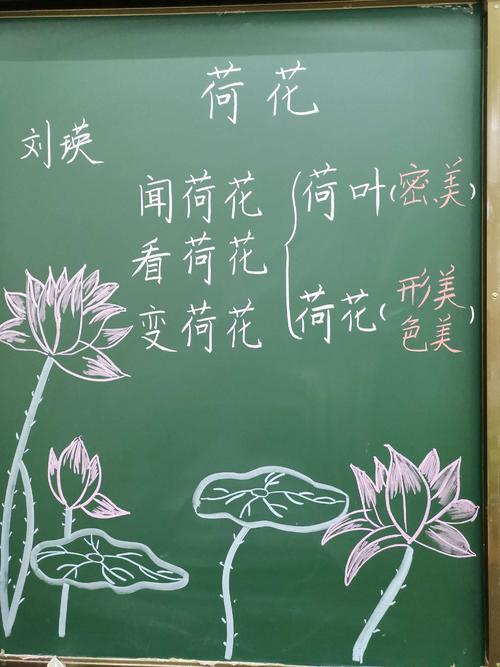 荷花
刘瑛
闻荷花
看荷花
变荷花
荷叶(密、美)
荷花(形美
色美)